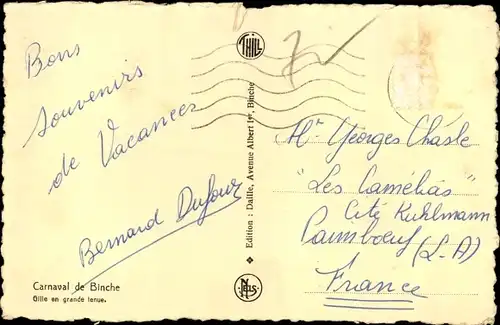 Bons
souvenirs
de Vacances
Bernard Dufour
Carnaval de Binche
Gille en grande tenue.
THILL
✥ Edition : Daille, Avenue Albert Ier, Binche
Nels
Mr Georges Chasle
"Les Camélias"
Cité Kuhlmann
Paimboeuf (L-A)
France